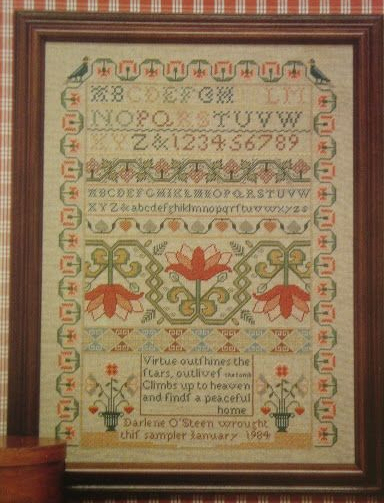 ABCDEFGH LM
NOPQRSTUVW
XYZ&123456789
ABCDEFGHIKLMNOPQRSTUVW
XYZ&abcdefghiklmnopqrſtuvwxyzs
Virtue outſhines the
ſtars, outliveſ the tomb
Climbs up to heaven
and findſ a peaceful
home
Darlene O'Steen wrought
thiſ sampler January 1984